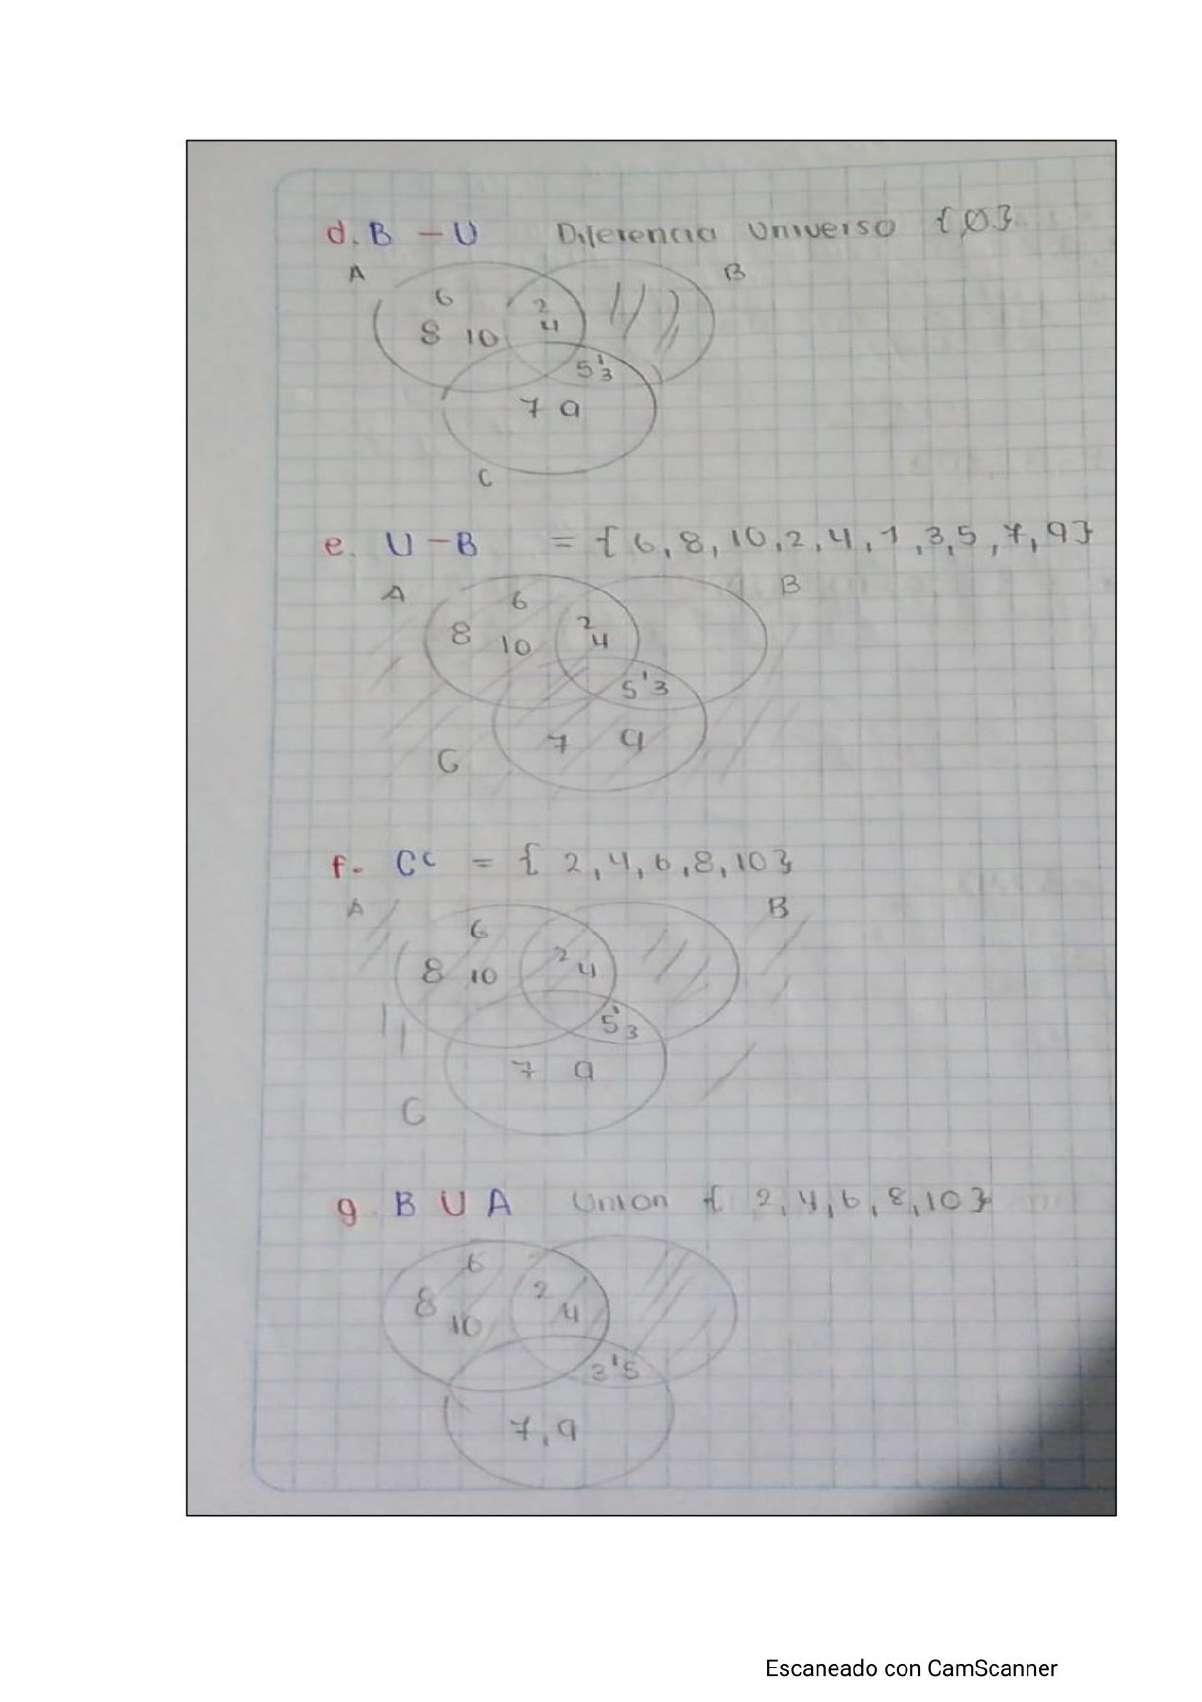 d. B - U Diferencia Universo {∅}
A B
6
2
8 10 4
1
5 3
7 9
C
e. U - B = {6, 8, 10, 2, 4, 1, 3, 5, 7, 9}
A B
6
2
8 10 4
1
5 3
7 9
C
f. Cᶜ = {2, 4, 6, 8, 10}
A B
6
2
8 10 4
1
5 3
7 9
C
g. B U A Union {2, 4, 6, 8, 10}
6
2
8 10 4
1
3 5
7, 9
Escaneado con CamScanner